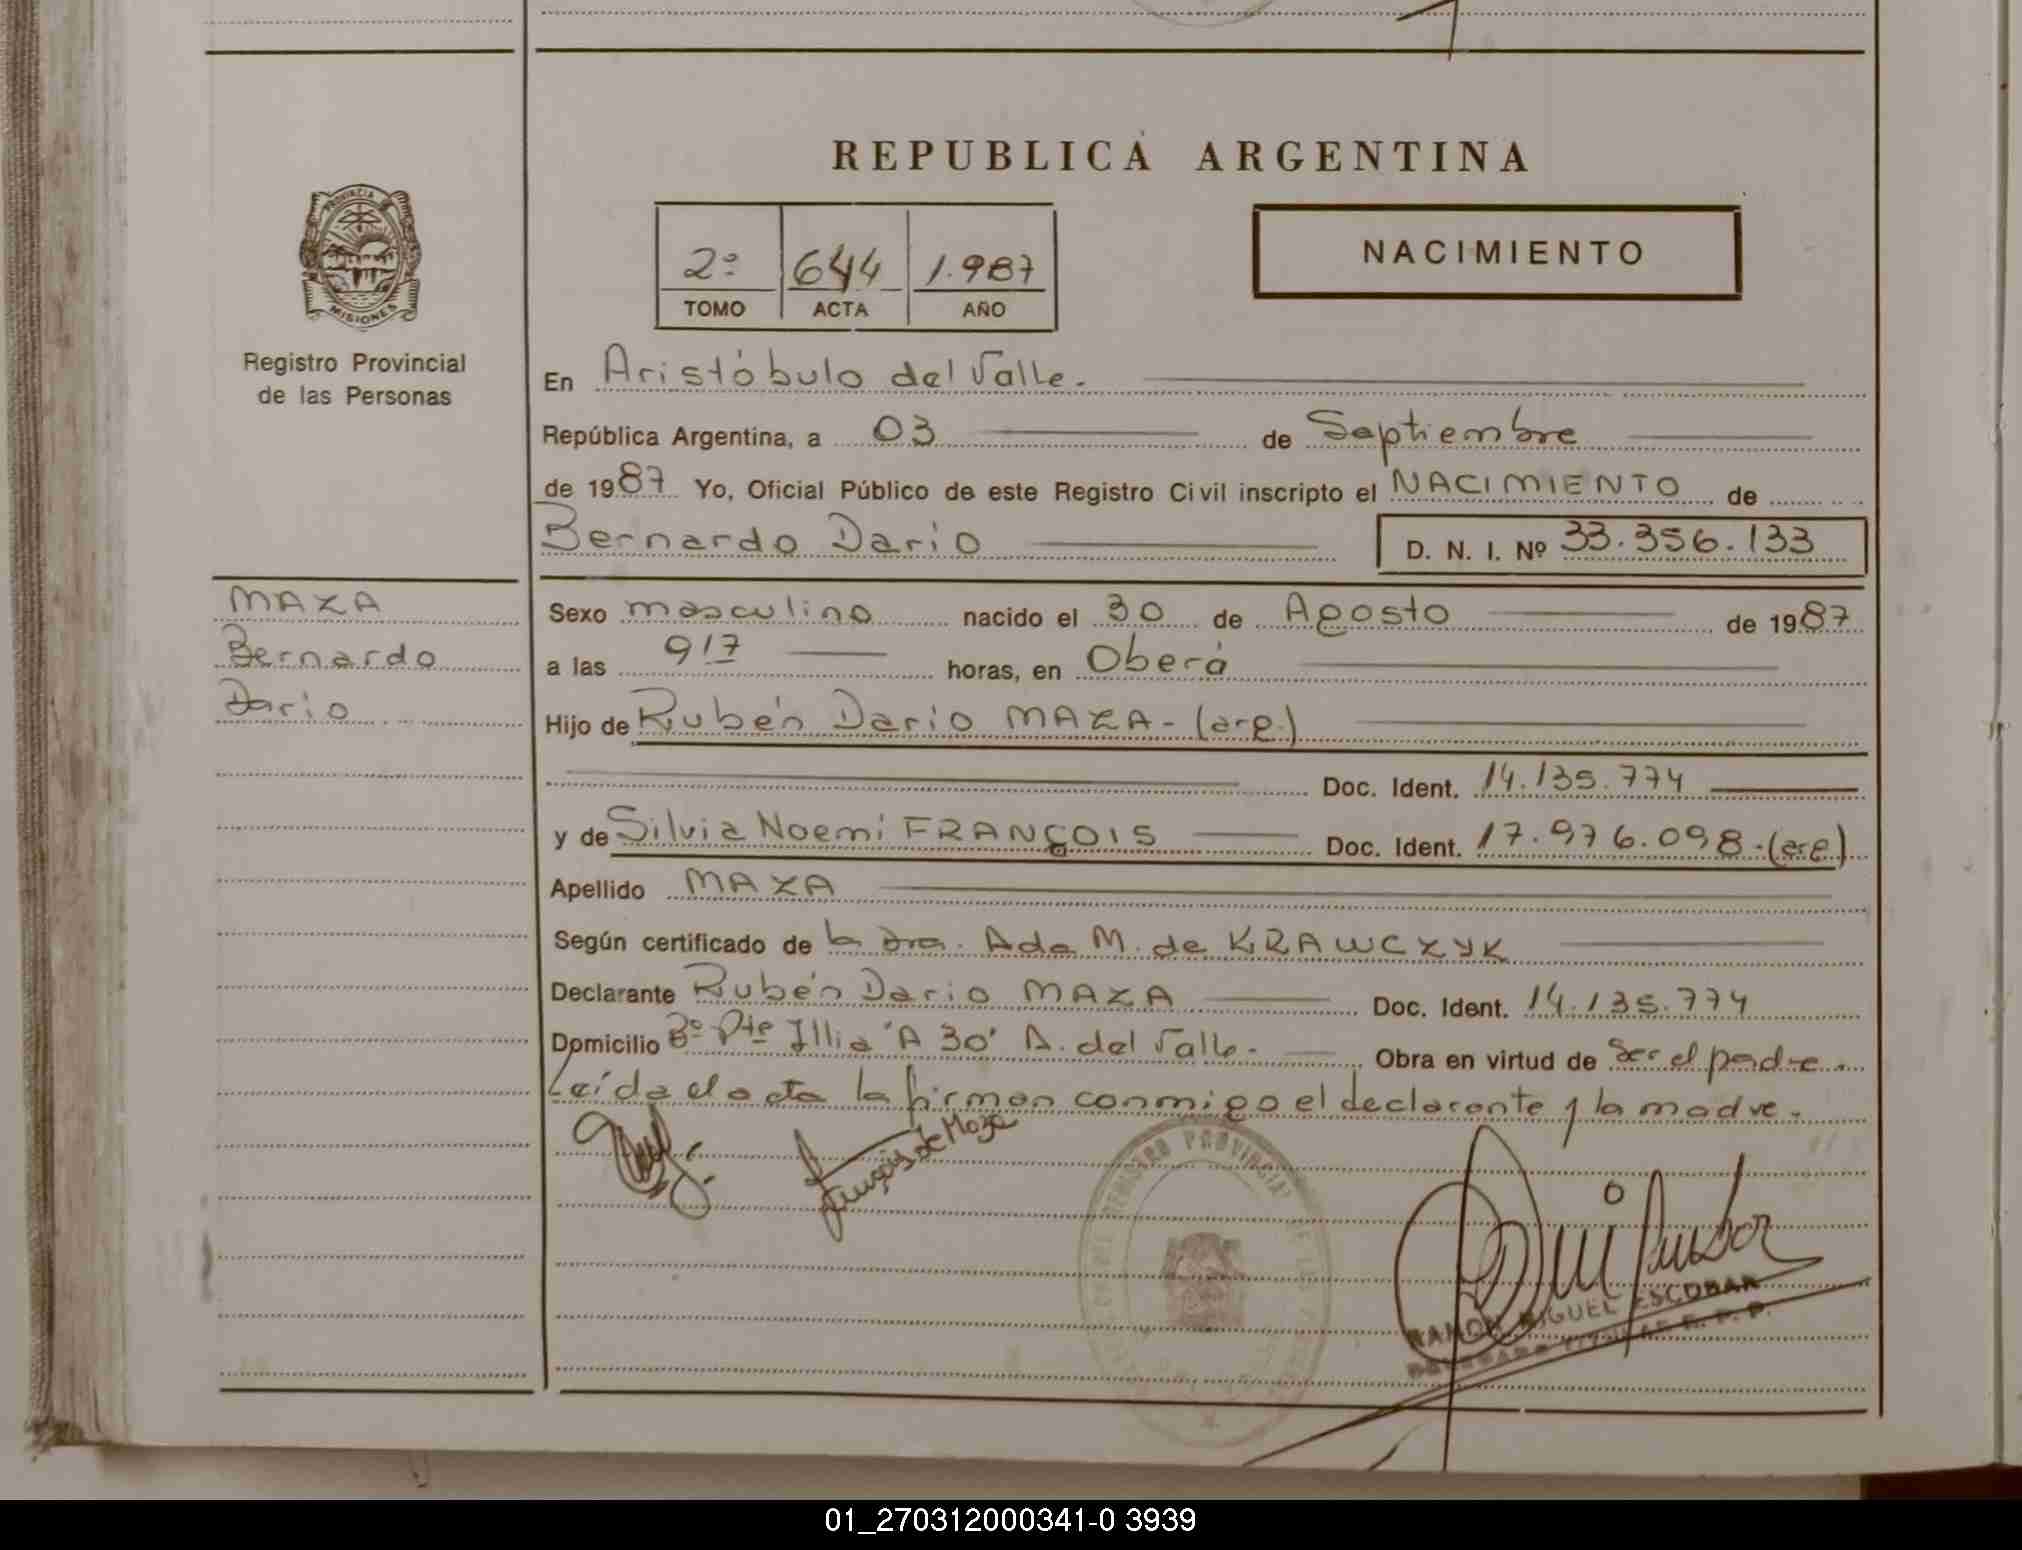 REPUBLICA ARGENTINA
PROVINCIA
MISIONES
Registro Provincial
de las Personas
2º 644 1.987
TOMO ACTA AÑO
NACIMIENTO
En Aristóbulo del Valle.
República Argentina, a 03 de Septiembre
de 1987 Yo, Oficial Público de este Registro Civil inscripto el NACIMIENTO de
Bernardo Dario D. N. I. Nº 33.356.133
MAZA
Bernardo
Dario
Sexo masculino nacido el 30 de Agosto de 1987
a las 917 horas, en Oberá
Hijo de Rubén Dario MAZA - (arg.)
Doc. Ident. 14.135.774
y de Silvia Noemi FRANÇOIS Doc. Ident. 17.976.098-(arg)
Apellido MAZA
Según certificado de la Dra. Ada M. de KRAWCZYK
Declarante Rubén Dario MAZA Doc. Ident. 14.135.774
Domicilio Bº Pte Illia "A 30" A. del Valle. Obra en virtud de Ser el padre.
Leída el acta la firman conmigo el declarante y la madre.
François de Maza
REGISTRO PROVINCIAL DE LAS
RAMON MIGUEL ESCOBAR
01_270312000341-0 3939